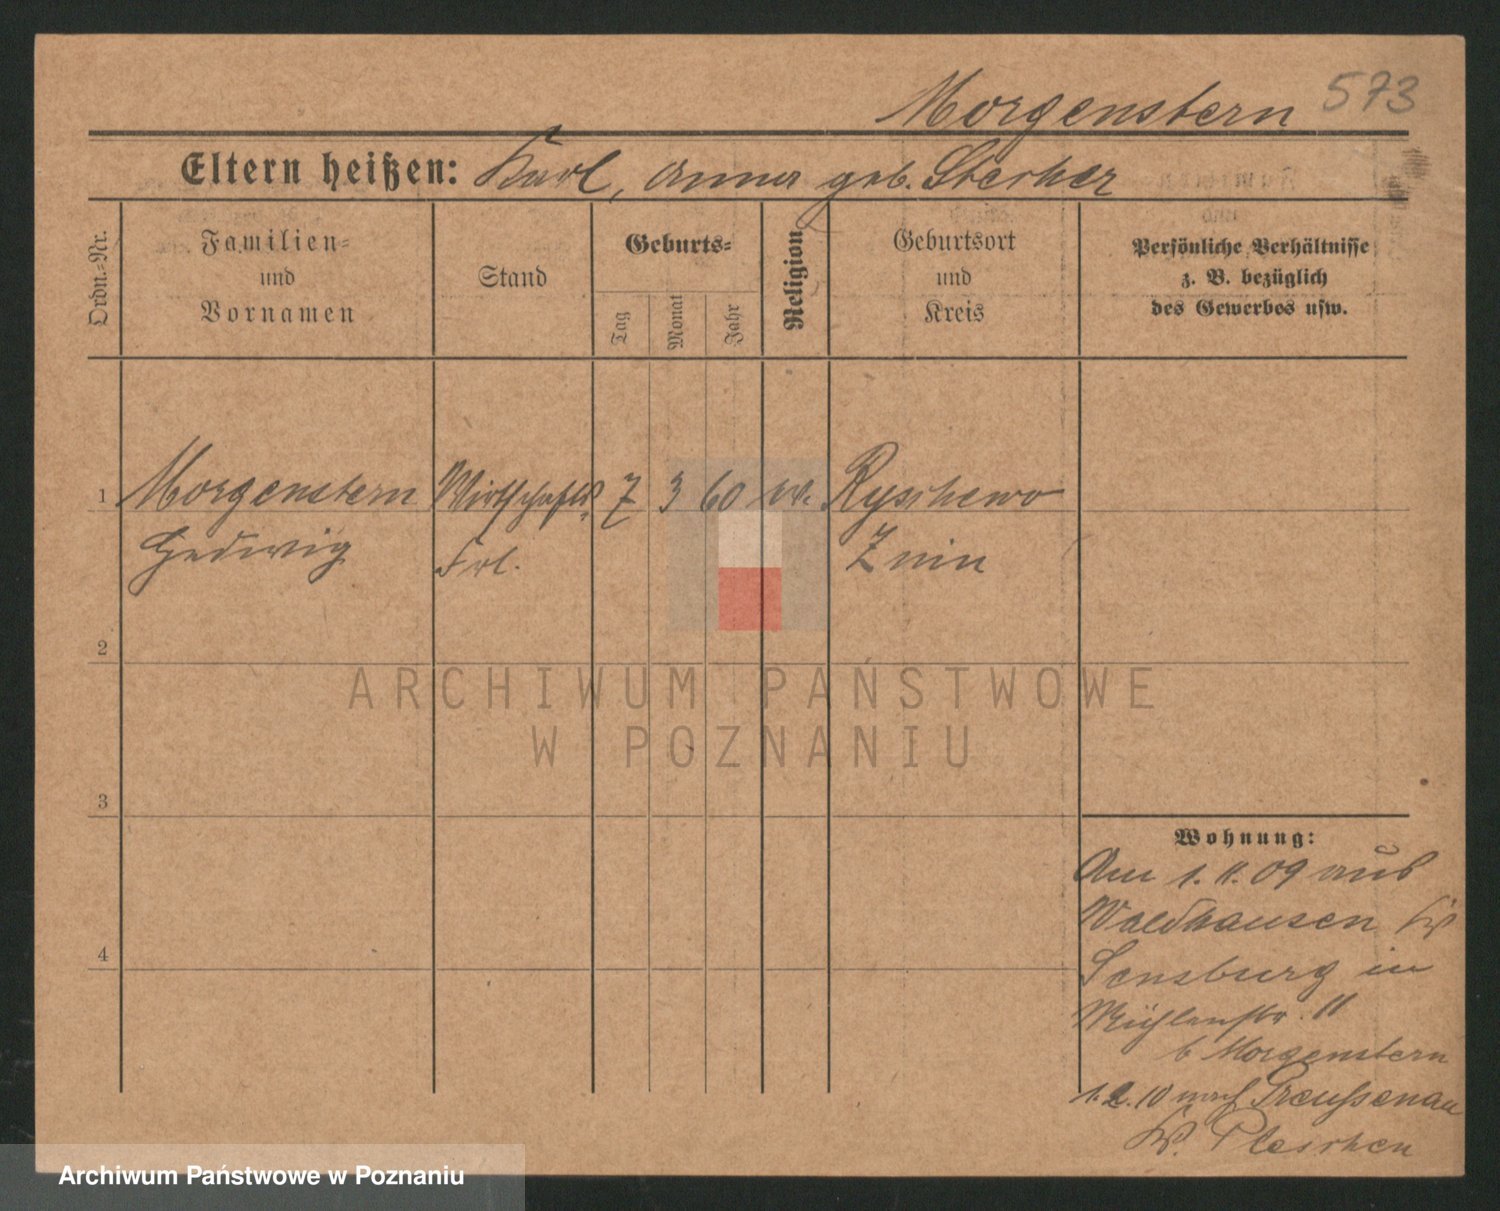 Morgenstern 573
Eltern heißen: Karl, Anna geb. Stecher
Ordn.-Nr.
Familien-
und
Vornamen
Stand
Geburts-
Tag
Monat
Jahr
Religion
Geburtsort
und
Kreis
Persönliche Verhältnisse
z. B. bezüglich
des Gewerbes usw.
1 Morgenstern Wirtschafts 7 3 60 ev. Ryschewo
Hedwig Frl. Znin
2
3
4
Wohnung:
Am 1.11.09 aus
Waldhausen Kr.
Sensburg in
Mühlenstr. 11
b Morgenstern
1.2.10 nach Preussenau
Kr. Pleschen
ARCHIWUM PAŃSTWOWE
W POZNANIU
Archiwum Państwowe w Poznaniu